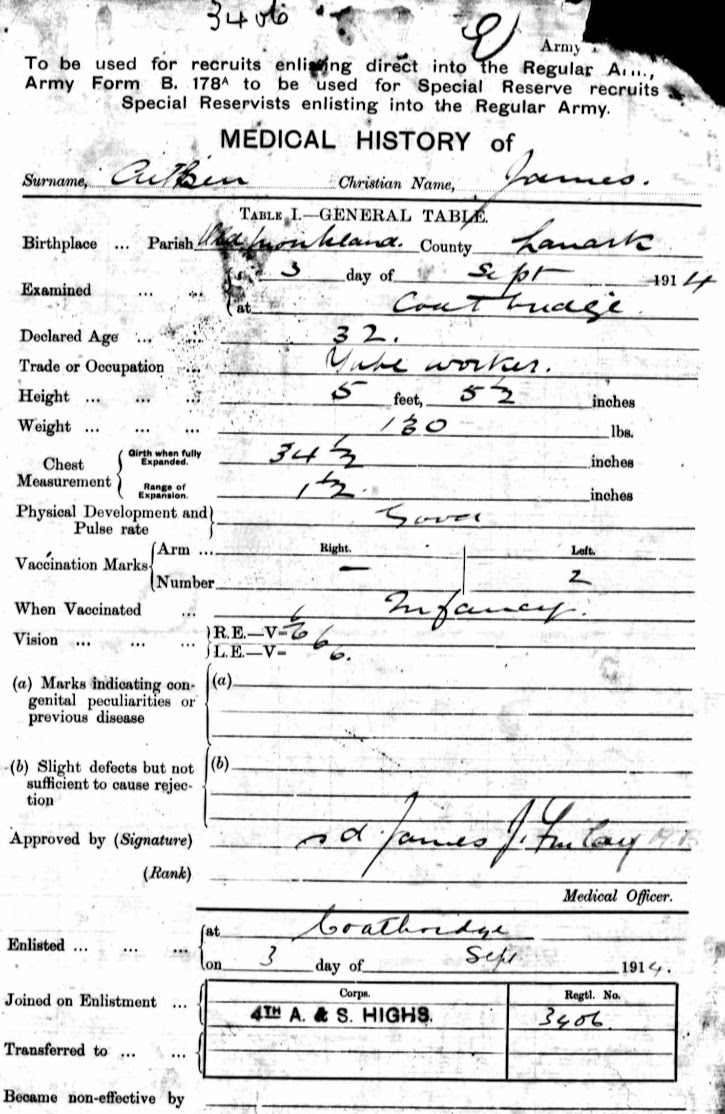 3406
Army
To be used for recruits enlisting direct into the Regular A...,
Army Form B. 178A to be used for Special Reserve recruits
Special Reservists enlisting into the Regular Army.
MEDICAL HISTORY of
Surname, Aitken Christian Name, James.
TABLE I.—GENERAL TABLE.
Birthplace ... Parish Old Monkland. County Lanark
Examined ... ... { on 3 day of Sept 1914
at Coatbridge.
Declared Age ... ... 32.
Trade or Occupation ... Tube worker.
Height ... ... ... 5 feet, 5 1/2 inches
Weight ... ... ... lbs.
Chest Measurement { Girth when fully Expanded. 34 1/2 inches
Range of Expansion. 1 1/2. inches
Physical Development and Pulse rate } Good
Vaccination Marks { Arm ... Right. — Left.
Number 2
When Vaccinated ... Infancy.
Vision ... ... ... } R.E.—V= 6/6
L.E.—V= 6/6.
(a) Marks indicating con- (a)
genital peculiarities or
previous disease
(b) Slight defects but not (b)
sufficient to cause rejec-
tion
Approved by (Signature) sd. James J. Finlay
(Rank)
Medical Officer.
Enlisted ... ... ... { at Coatbridge
on 3 day of Sept 1914.
Corps. Regtl. No.
Joined on Enlistment ... 4TH A. & S. HIGHS. 3406.
Transferred to ... ...
Became non-effective by